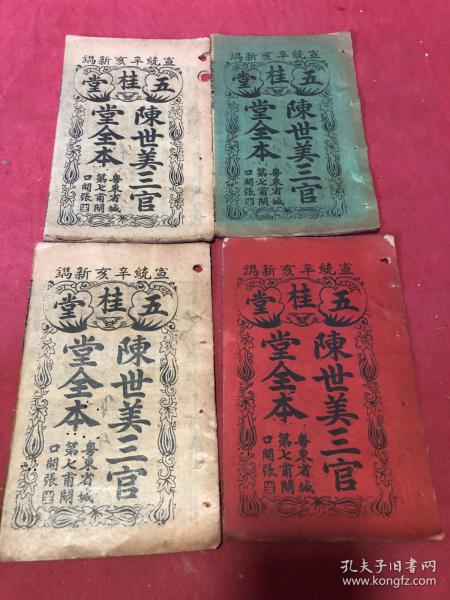 宣統辛亥新鐫
五桂堂
陳世美三官
堂全本
粵東省城
第七甫開
口開張
宣統辛亥新鐫
五桂堂
陳世美三官
堂全本
粵東省城
第七甫開
口開張
宣統辛亥新鐫
五桂堂
陳世美三官
堂全本
粵東省城
第七甫開
口開張
宣統辛亥新鐫
五桂堂
陳世美三官
堂全本
粵東省城
第七甫開
口開張
孔夫子旧书网
www.kongfz.com